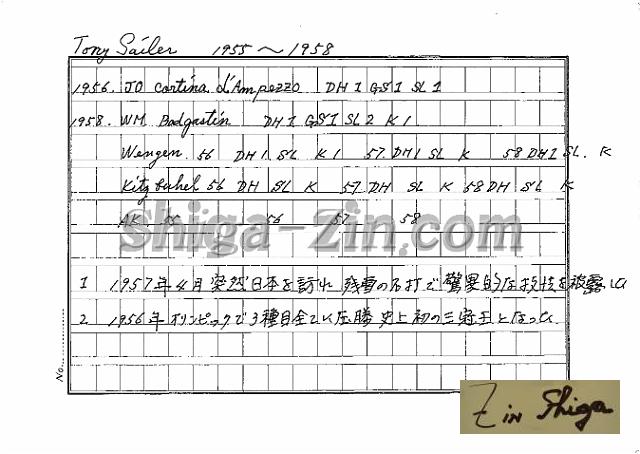 Tony Sailer 1955〜1958
1956. JO Cortina d'Ampezzo DH1 GS1 SL1
1958. WM Badgastin DH1 GS1 SL2 K1
Wengen 56 DH1 SL K1 57. DH1 SL K 58 DH1 SL. K
Kitzbuhel 56 DH SL K 57 DH SL K 58 DH SL K
AK 55 56 57 58
Shiga-Zin.com
1 1957年4月突然日本を訪れ 残雪の 打で驚異的な技技を披露した
2 1956年オリンピックで3種目全てに圧勝 史上初の三冠王となった
No.
Zin Shiga